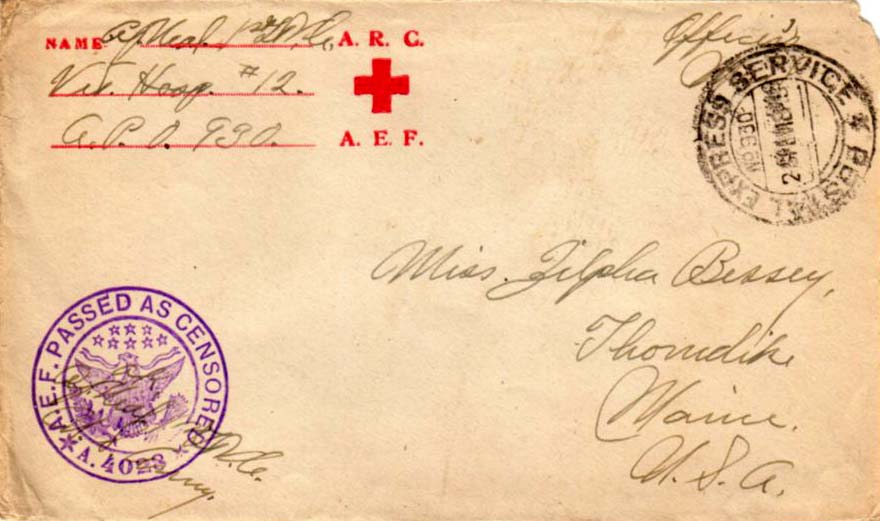 NAME
A. R. C.
Vet. Hosp. #12.
A. P. O. 930.
A. E. F.
Officer's
POSTAL EXPRESS SERVICE
No 930
Miss. Zilpha Bessey,
Thorndike
Maine.
U. S. A.
A.E.F. PASSED AS CENSORED
A. 4023